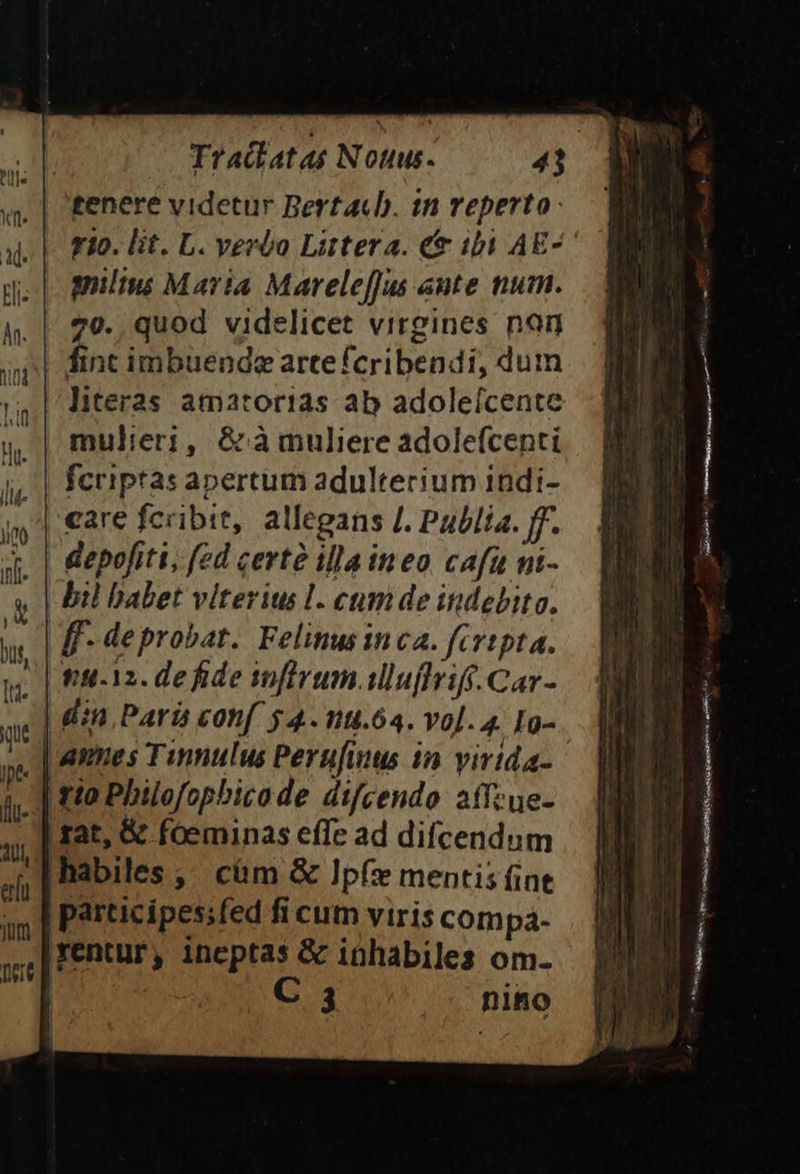 Tractatas Nouus. 43
tenere videtur Bertach. in reperto-
rio. lit. L. verbo Littera. & ibi AE-
milius Maria Mareleſſus aute num.
70. quod videlicet virgines non
ſint imbuendæ arte ſcribendi, dum
literas amatorias ab adoleſcente
mulieri, & à muliere adoleſcenti
ſcriptas apertum adulterium indi-
care ſcribit, allegans l. Publia. ff.
depoſiti, ſed certè illa in eo caſu ni-
hil habet vlterius l. cum de indebito.
ff. de probat. Felinus in ca. ſcripta.
nu. 12. de fide inſtrum. illuſtriſſ. Car-
din. Paris conſ. 54. nu. 64. vol. 4. Io-
annes Tinnulus Peruſinus in virida-
rio Philoſophico de diſcendo aſſeue-
rat, & fœminas eſſe ad diſcendum
habiles, cùm & Ipſæ mentis ſint
participes; ſed ſi cum viris compa-
rentur, ineptas & inhabiles om-
C 3 nino